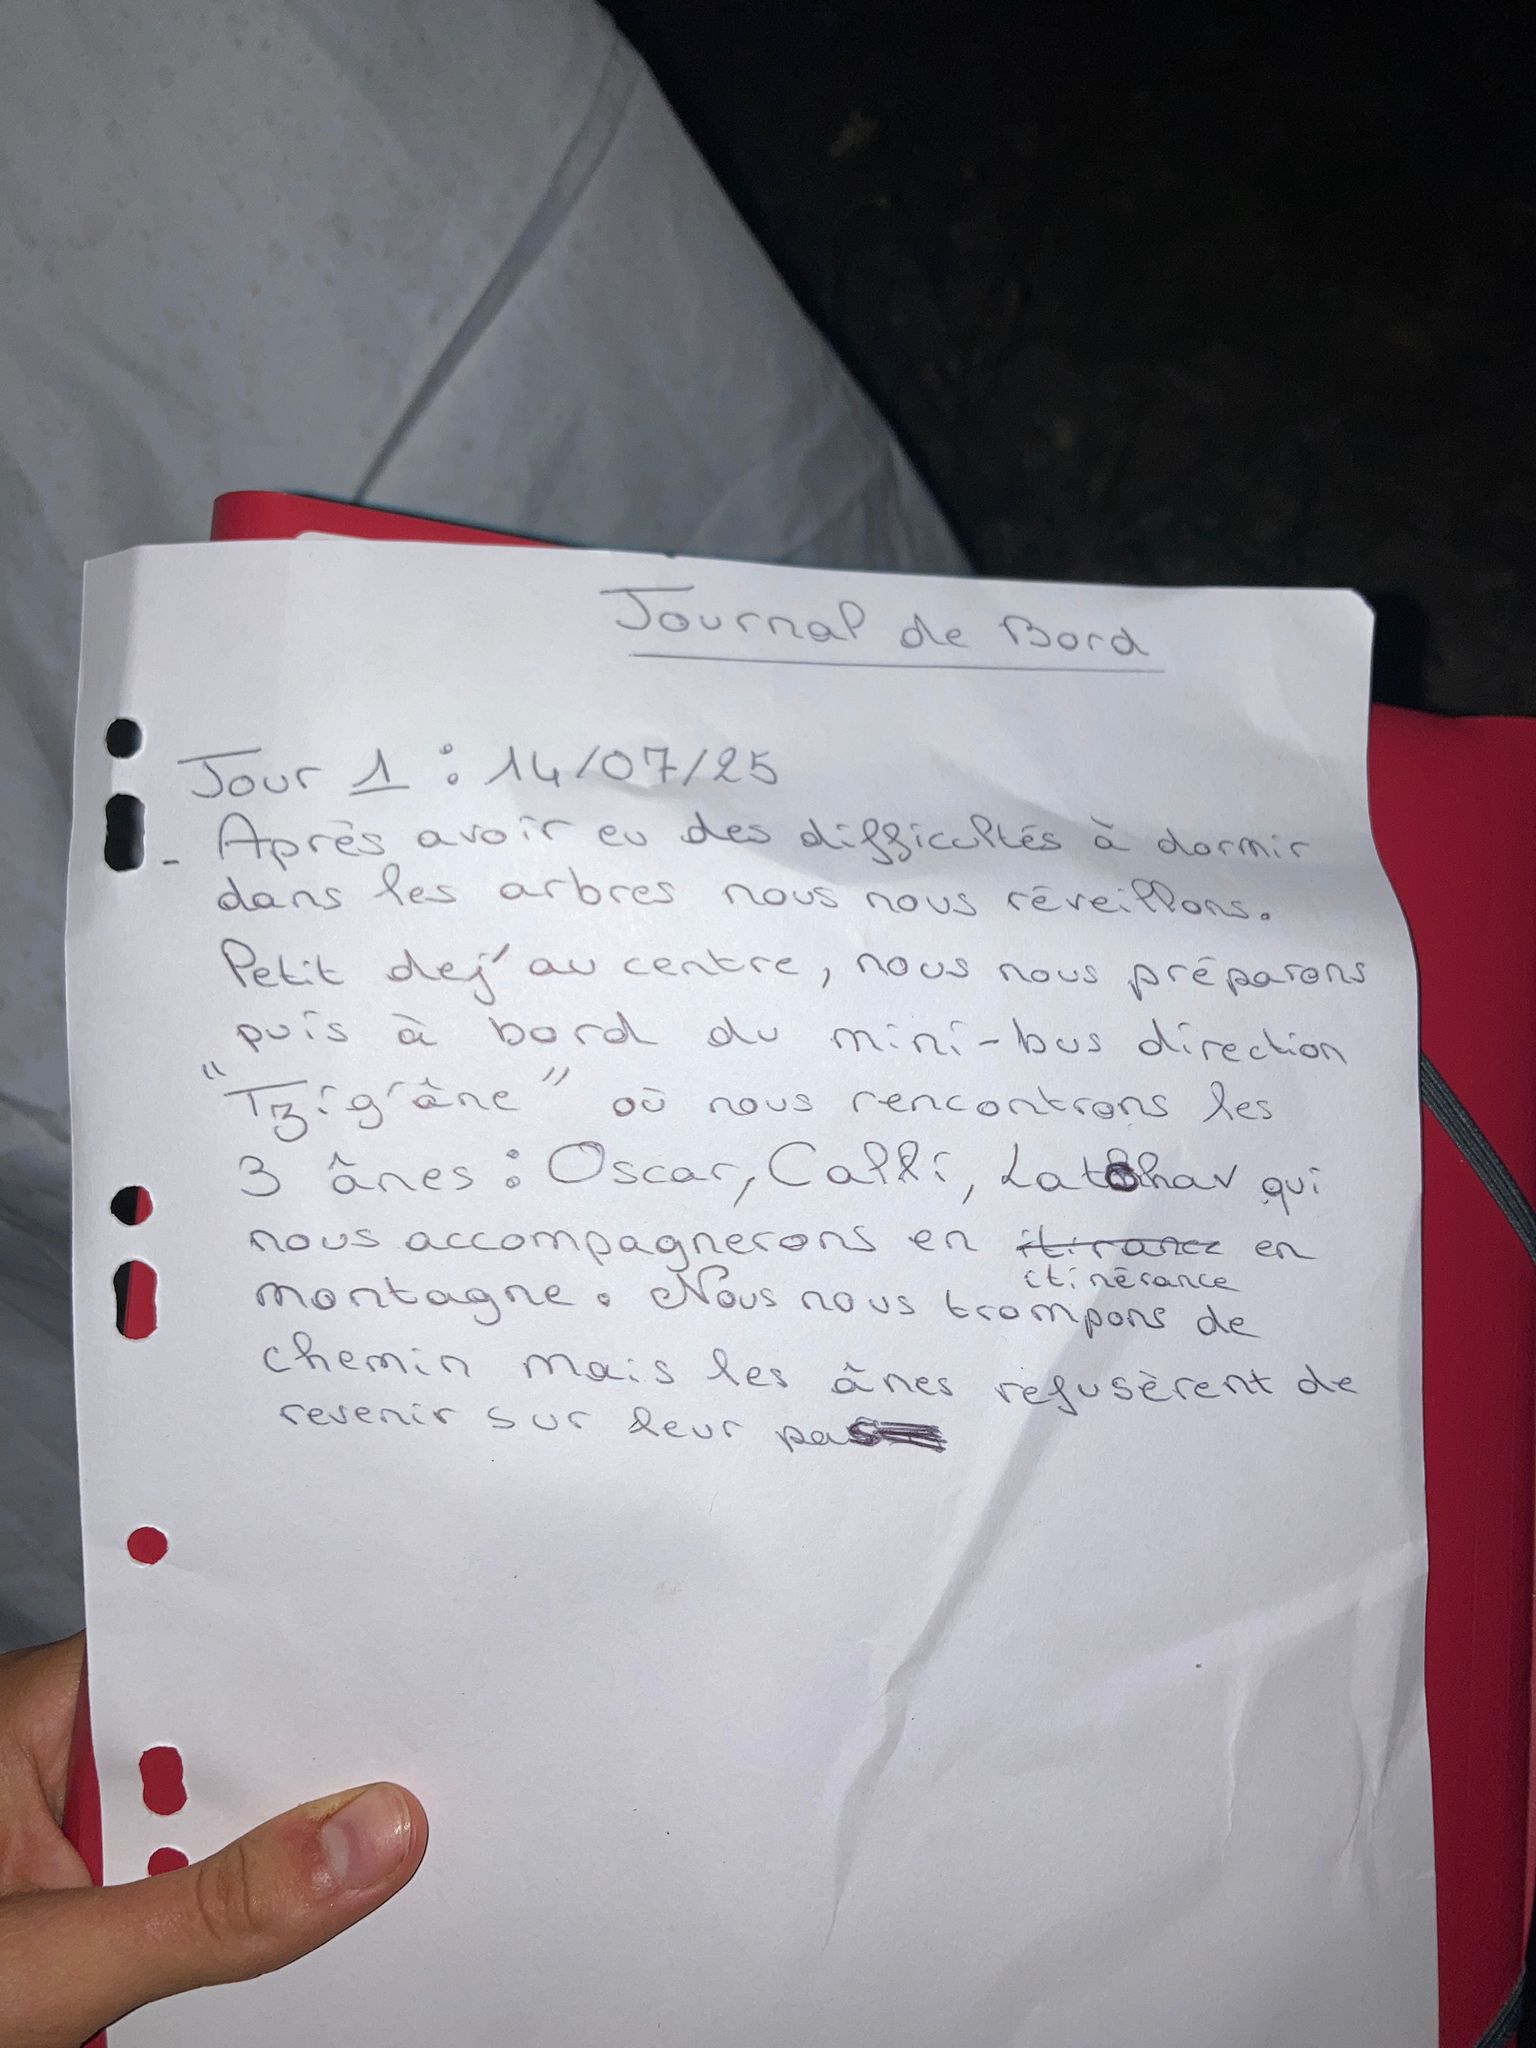 Journal de Bord
Jour 1 : 14/07/25
- Après avoir eu des difficultés à dormir
dans les arbres nous nous réveillons.
Petit dej' au centre, nous nous préparons
puis à bord du mini-bus direction
"Tzig'âne" où nous rencontrons les
3 ânes : Oscar, Calli, qui
nous accompagnerons en itirance en
itinérance
montagne. Nous nous trompons de
chemin mais les ânes refusèrent de
revenir sur leur pas